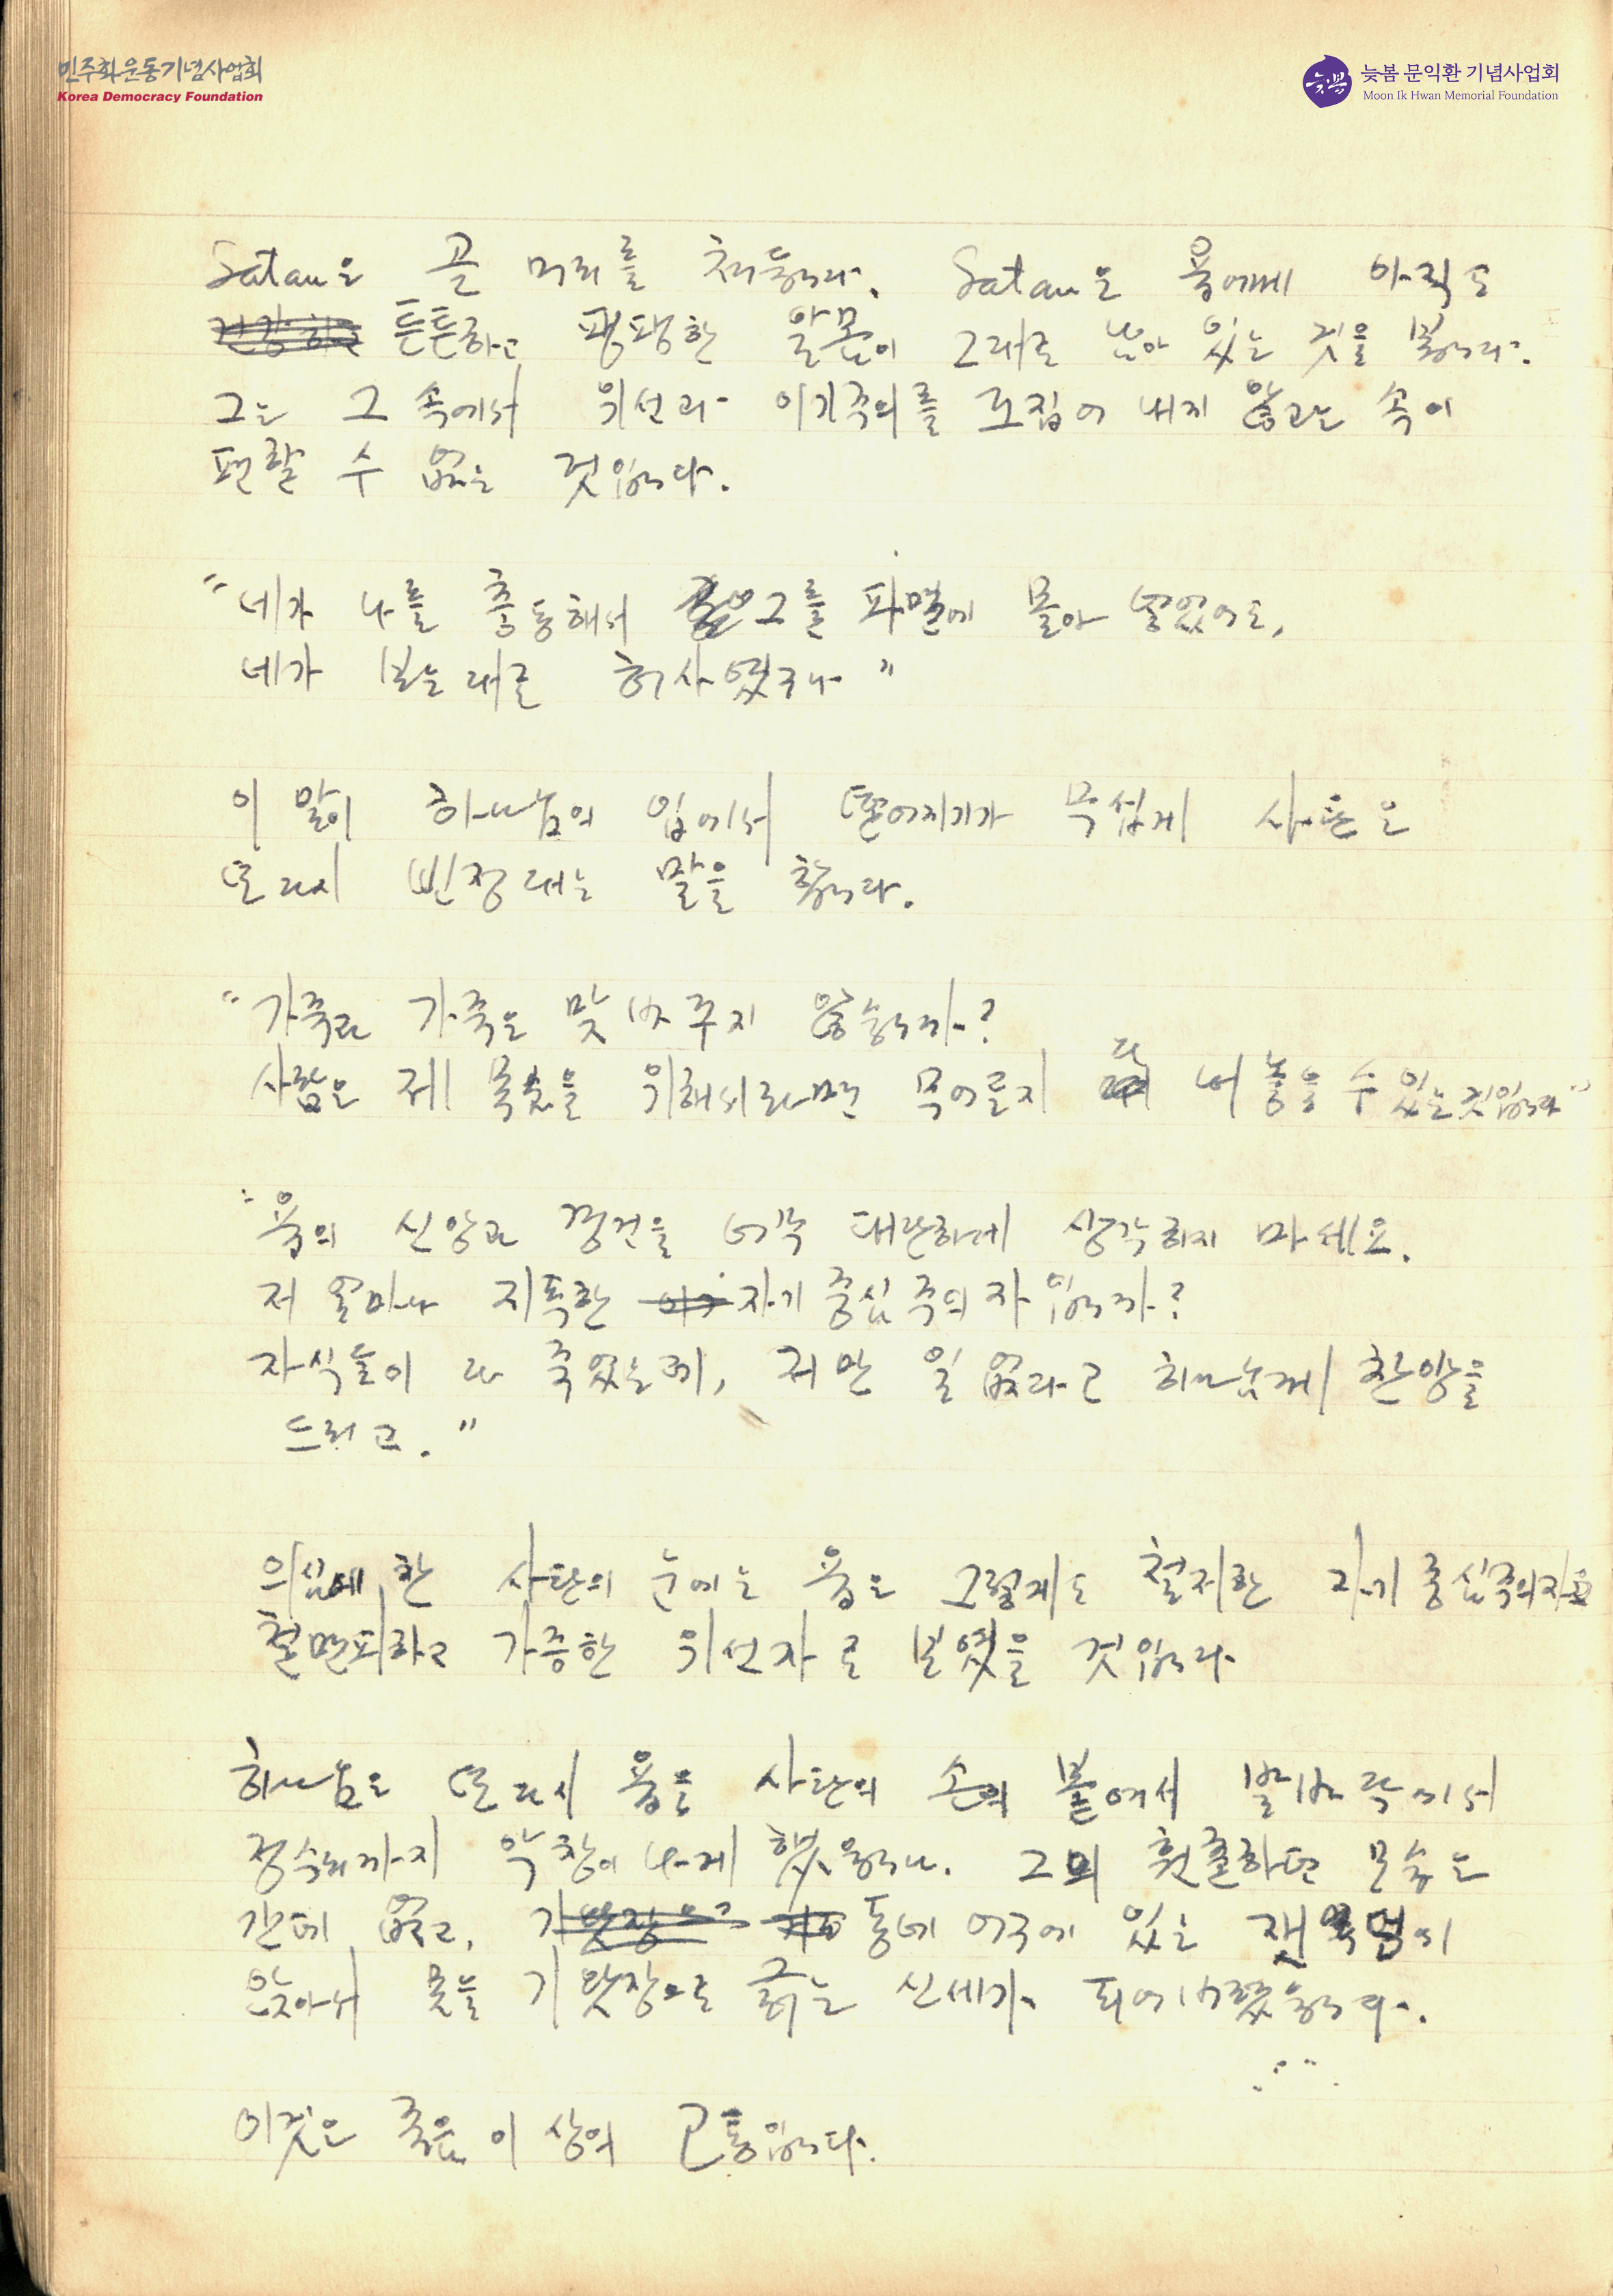 민주화운동기념사업회
Korea Democracy Foundation
늦봄
늦봄 문익환 기념사업회
Moon Ik Hwan Memorial Foundation
Satan은 곧 머리를 쳐듭니다. Satan은 욥에게 아직도
건강하고 튼튼하고 팽팽한 알몸이 그대로 남아 있는 것을 봅니다.
그는 그 속에서 위선과 이기주의를 꼬집어 내지 않고는 속이
편할 수 없는 것입니다.
"네가 나를 충동해서 그를 파멸에 몰아 넣었어도,
네가 보는대로 허사였구나"
이 말이 하나님의 입에서 떨어지기가 무섭게 사탄은
또다시 빈정대는 말을 합니다.
"가죽과 가죽은 맞바꾸지 않습니까?
사람은 제 목숨을 위해서라면 무어든지 다 내놓을 수 있는 것입니다"
"욥의 신앙과 경건을 너무 대단하게 생각하지 마세요.
저 얼마나 지독한 자기중심주의자입니까?
자식들이 다 죽었는데, 저만 일 없다고 하나님께 찬양을
드리고."
의심에 찬 사탄의 눈에는 욥은 그렇게도 철저한 자기중심주의자요
철면피하고 가증한 위선자로 보였을 것입니다
하나님은 또다시 욥을 사탄의 손에 붙여서 발바닥에서
정수리까지 악창이 나게 했습니다. 그의 훤출하던 모습은
간데 없고, 동네 어구에 있는 잿더미에
앉아서 몸을 기왓장으로 긁는 신세가 되어버렸습니다.
이것은 죽음 이상의 고통입니다.